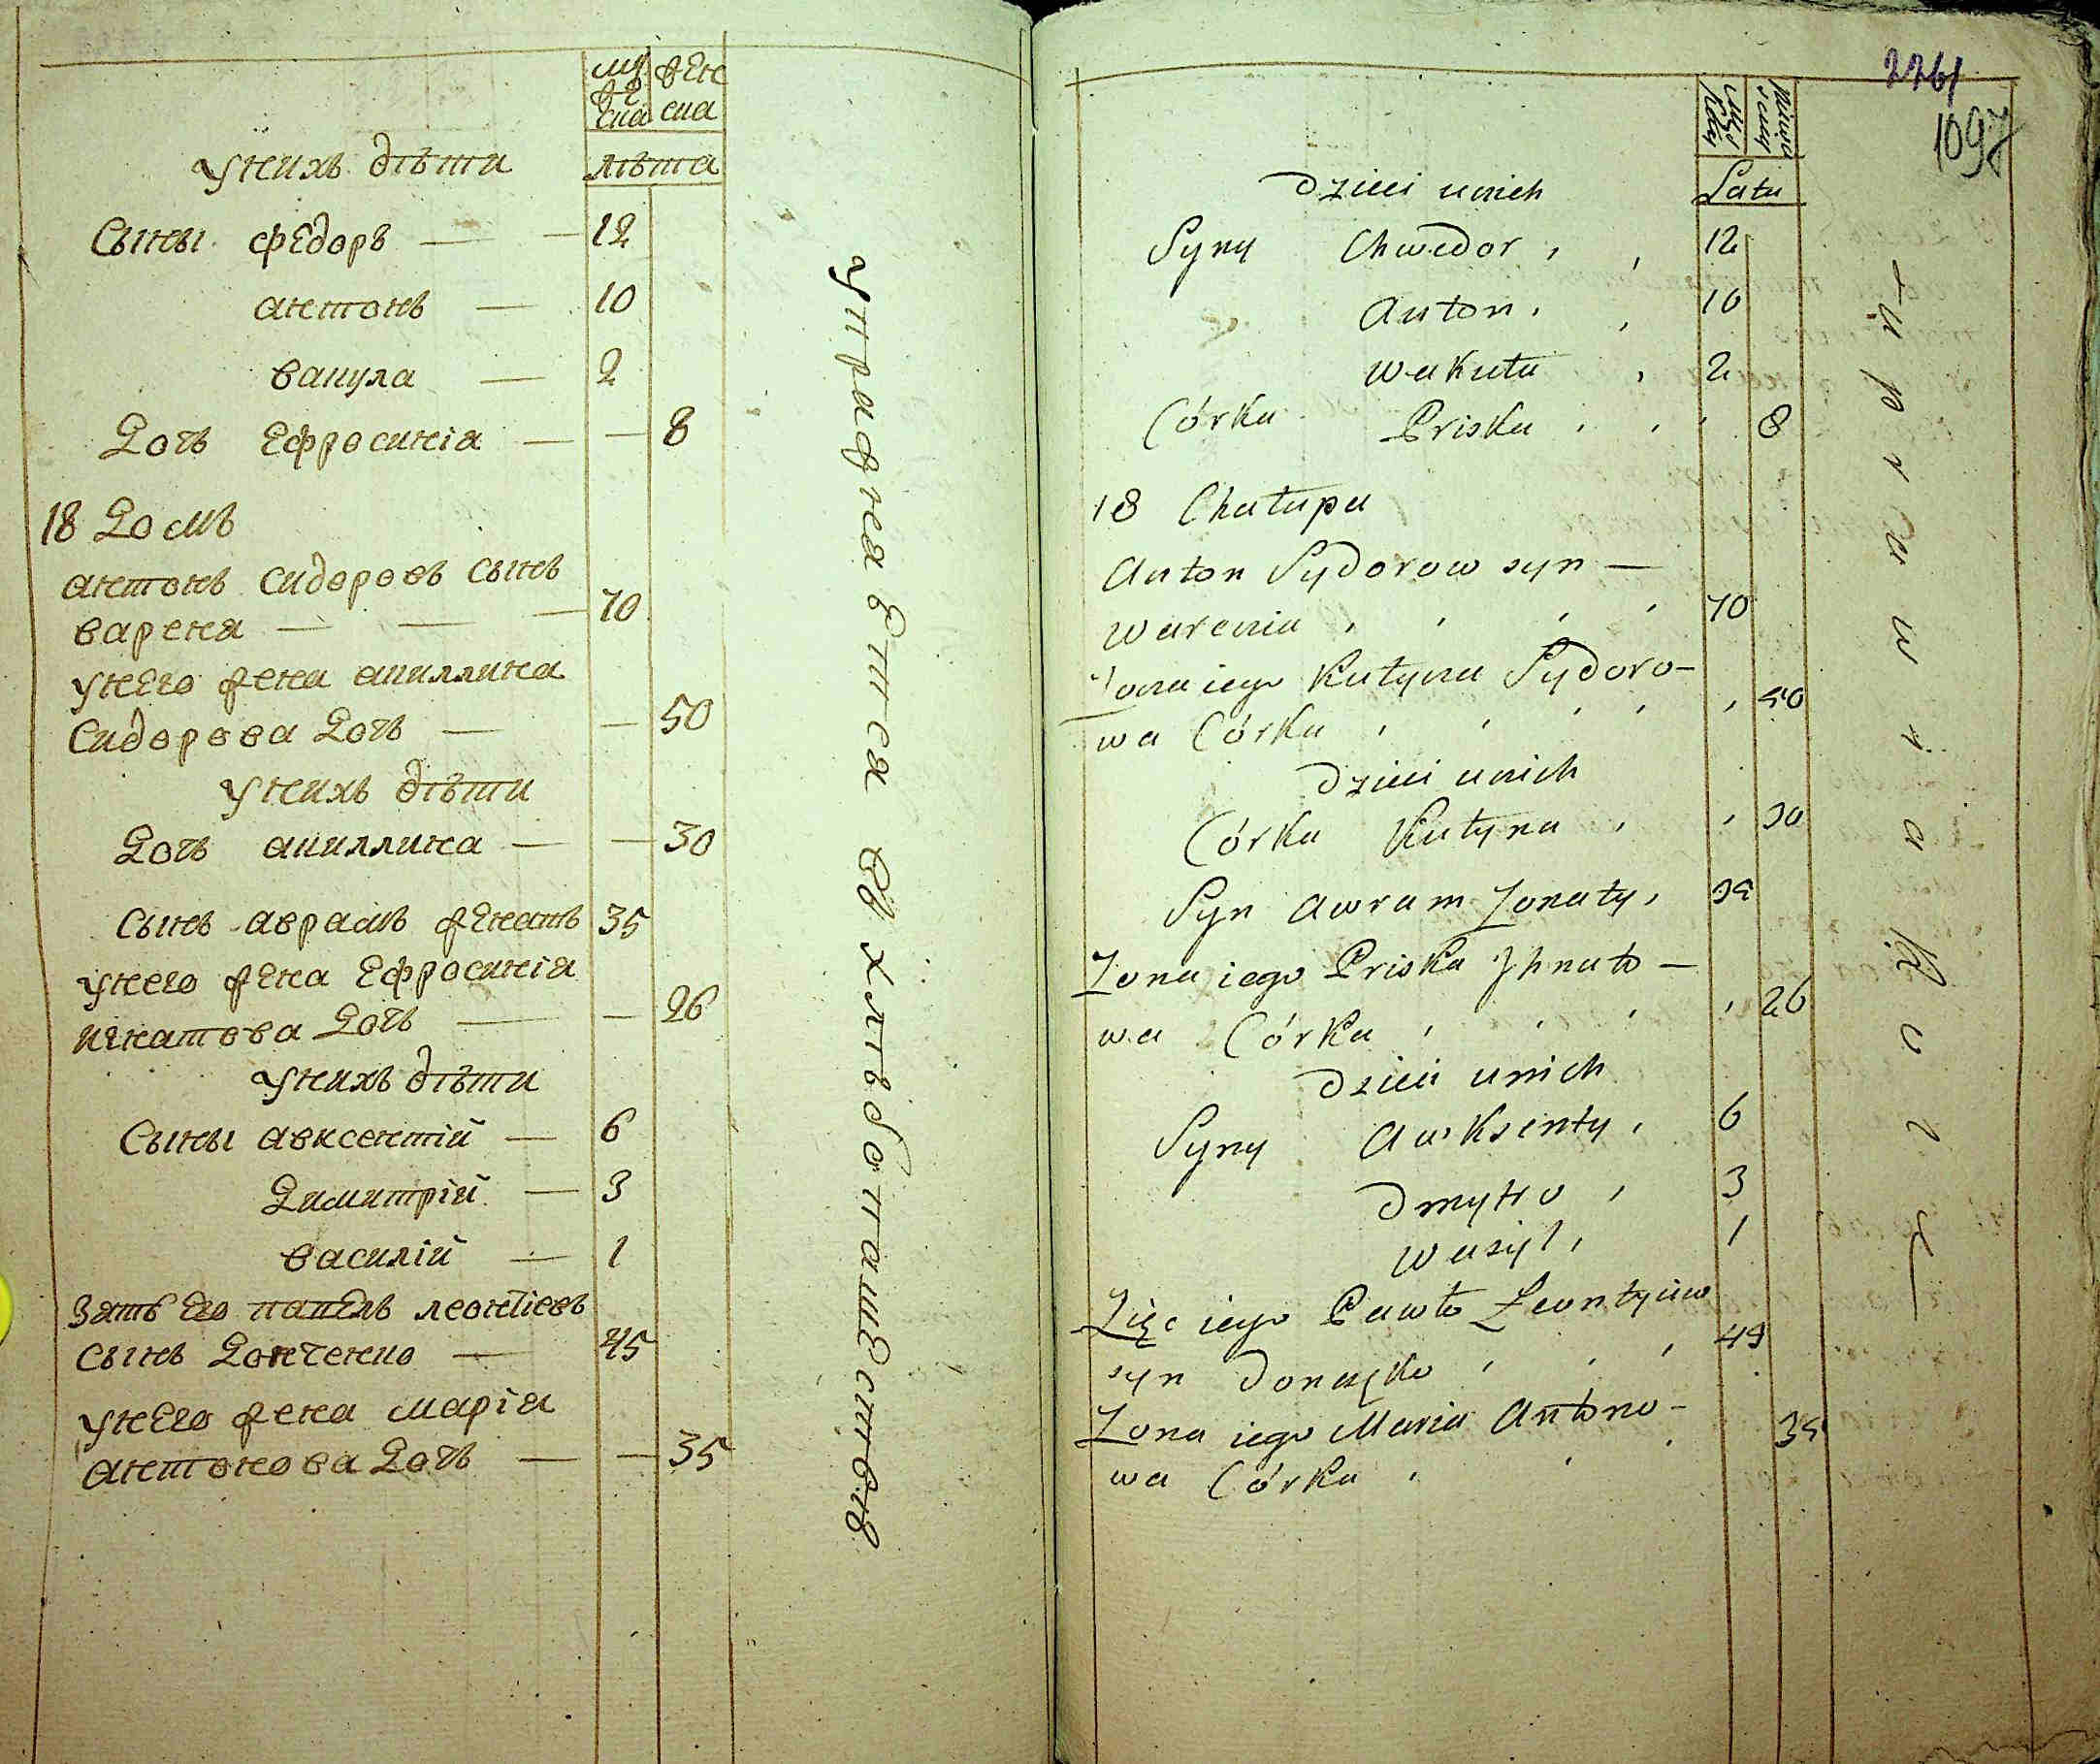 муже
ска
женска
лѣта
Унихъ дѣти
Сыны Федоръ — — 12
Антонъ — 10
Вакула — 2
Дочь Ефросинія — — 8
18 Домъ
Антонъ Сидоровъ сынъ
Вареня — — — 70
Унего жена Акиллина
Сидорова Дочь — — 50
Унихъ дѣти
Дочь Акиллина — — 30
Сынъ Аврамъ женатъ 35
Унего жена Ефросинія
Игнатова Дочь — — 26
Унихъ дѣти
Сыны Авксентій — 6
Димитрій — 3
Василій — 1
Зять Его Павелъ Леонтіевъ
сынъ Донченко — 45
Унего жена Марія
Антонова Дочь — — 35
упражняется въ хлѣбопашествѣ
2261
1097
Lata
Dzieci u nich
Syny Chwedor , , 12
Anton , , 10
Wakuła , 2
Córka Priska , , , 8
18 Chałupa
Anton Sydorow syn —
Warenia , , , , 70
Żona iego Kułyna Sydoro-
wa Córka , , , , , 50
Dzieci u nich
Córka Kułyna , , 30
Syn Awram Żonaty , 35
Żona iego Priska Jhnato-
wa Córka , , , , 26
Dzieci u nich
Syny Awksenty , 6
Dmytro , 3
Wasyl , 1
Zięć iego Pawło Leontyiow
syn Donczko , , , 45
Żona iego Maria Antono-
wa Córka , , , 35